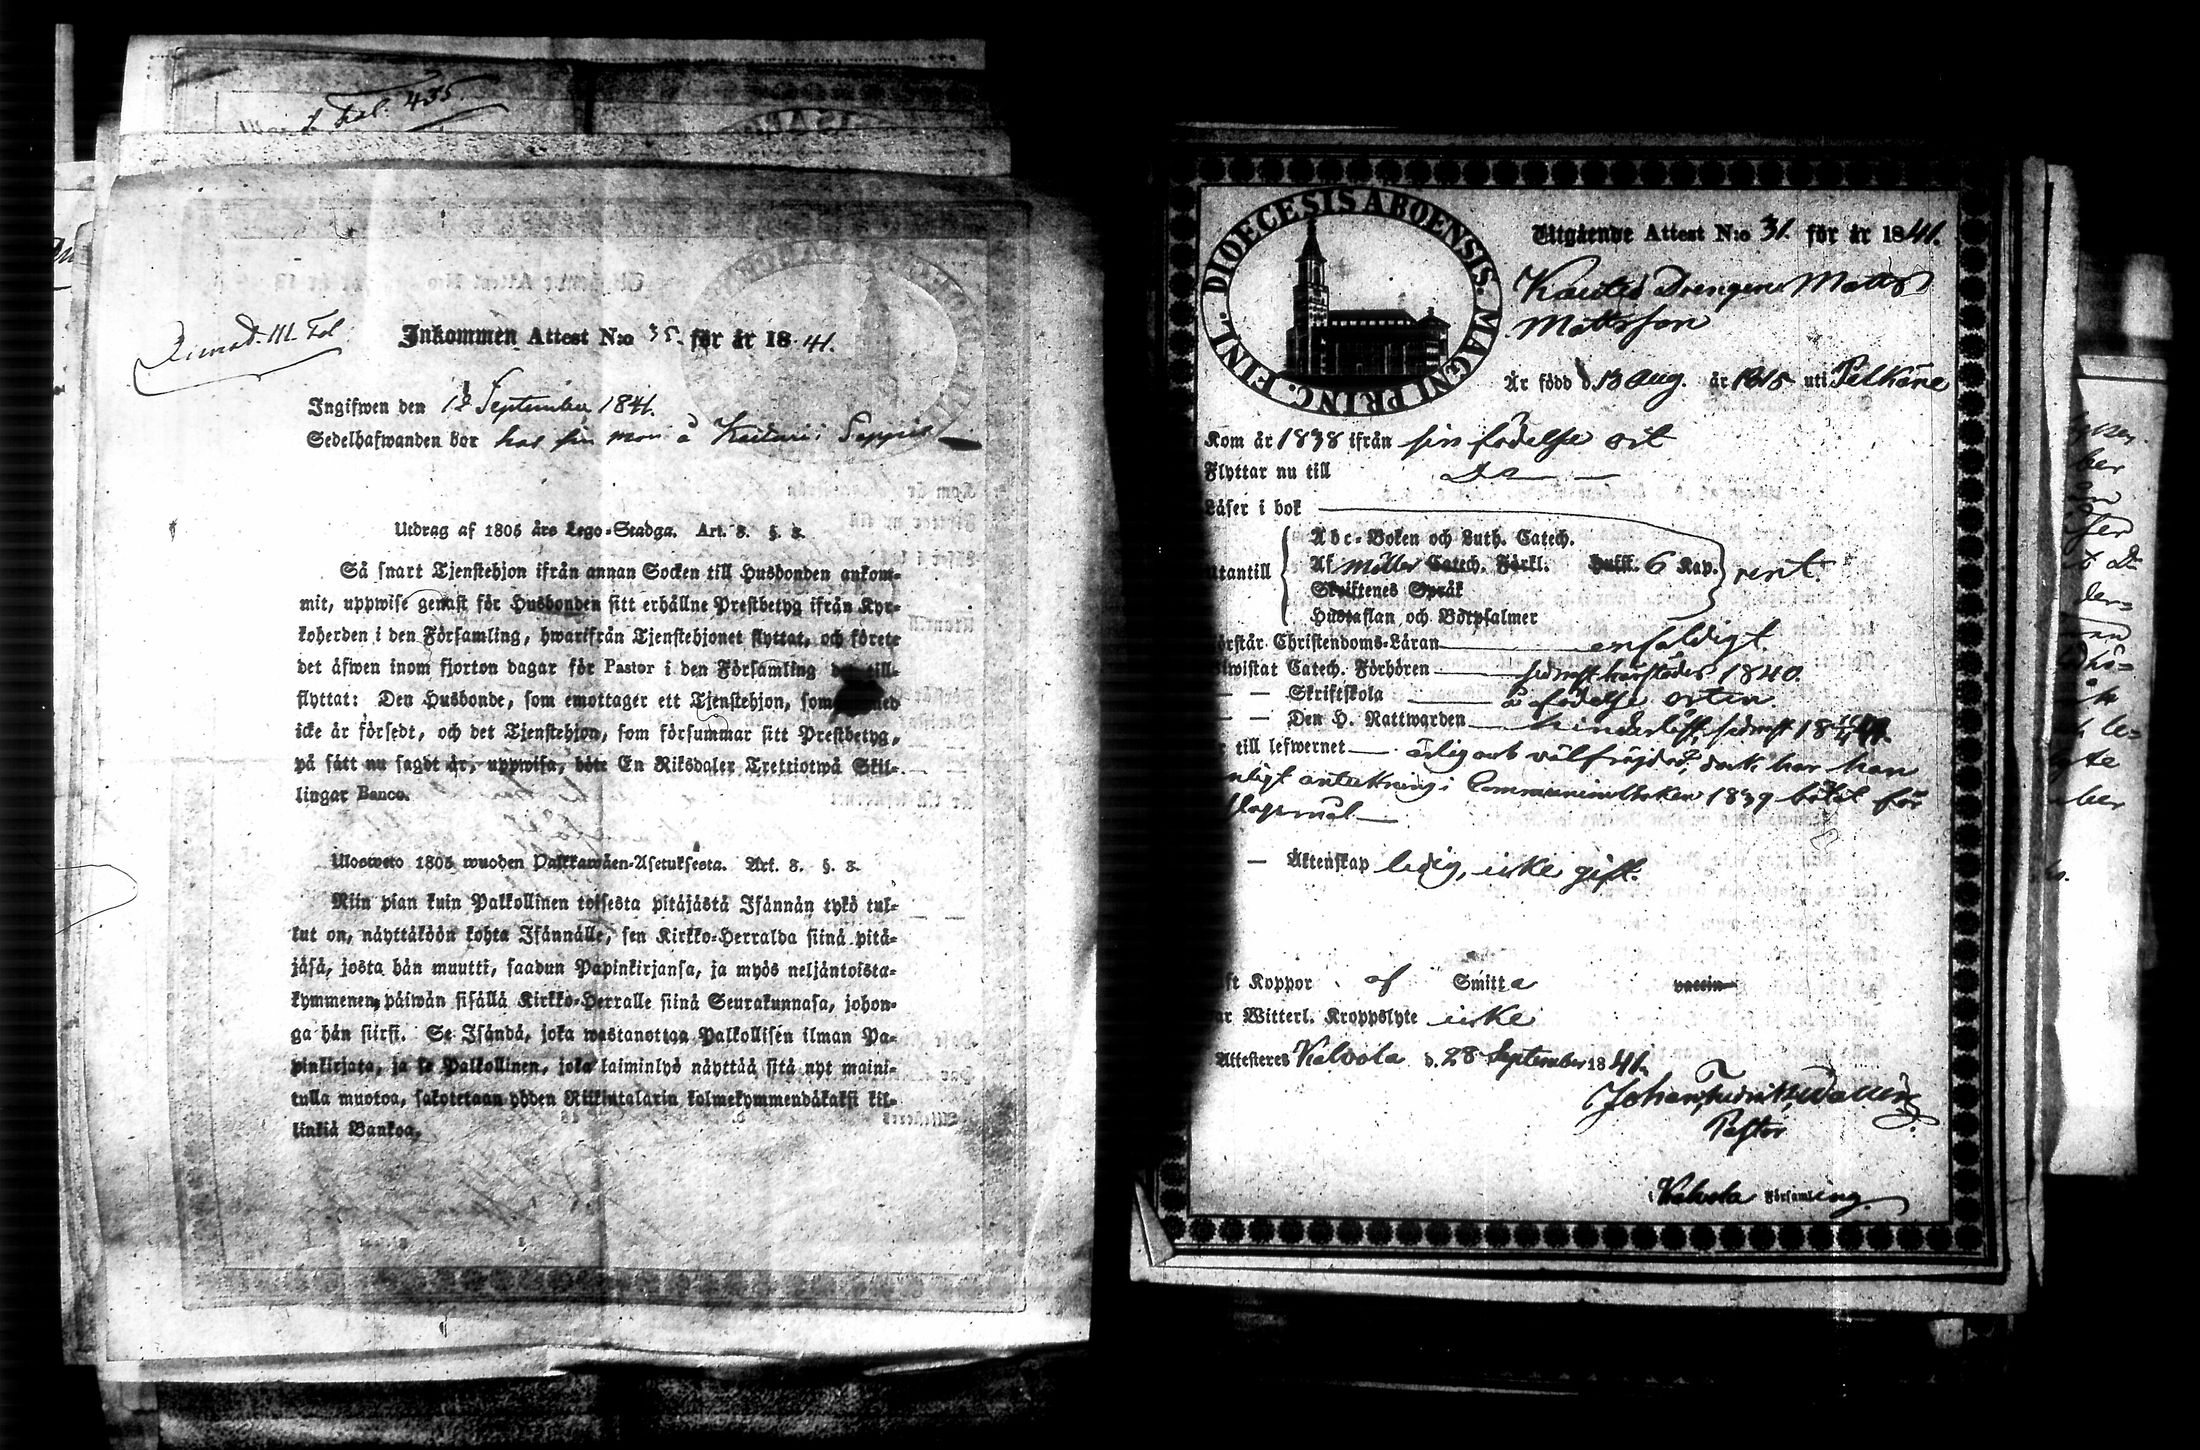 Fol. 435.
Inkommen Attest N:o 35. för år 1841.
Ingifwen den 12 September 1841.
Sedelhafwanden bor hos sin mor å
Utdrag af 1805 års Lego-Stadga. Art. 3. §. 3.
Så snart Tjenstehjon ifrån annan Socken till Husbonden ankom-
mit, uppwise genast för Husbonden sitt erhållne Prestbetyg ifrån Kyr-
koherden i den Församling, hwarifrån Tjenstehjonet flyttat, och förete
det äfwen inom fjorton dagar för Pastor i den Församling till-
flyttat: Den Husbonde, som emottager ett Tjenstehjon, som
icke är försedt, och det Tjenstehjon, som försummar sitt Prestbetyg,
på sätt nu sagdt är, uppwisa, böte En Riksdaler Trettiotwå Skil-
lingar Banco.
Ulosweto 1805 wuoden Palkkawäen-Asetuksesta. Art. 3. §. 3.
Niin pian kuin Palkollinen toisesta pitäjästä Isännän tykö tul-
kut on, näyttäköön kohta Isännälle, sen Kirkko-Herralda siinä pitä-
jäsä, josta hän muutti, saadun Papinkirjansa, ja myös neljäntoista-
kymmenen päiwän sisällä Kirkko-Herralle siinä Seurakunnasa, johon-
ga hän siirsi. Se Isändä, joka wastanottaa Palkollisen ilman Pa-
pinkirjata, ja se Palkollinen, joka laiminlyö näyttää sitä nyt maini-
tulla muotoa, sakotetaan yhden Riikintalarin kolmekymmendäkaksi kil-
linkiä Bankoa.
DIOECESIS ABOENSIS. MAGNI PRINC. FINL.
Utgående Attest N:o 31. för år 1841.
Drengen Matts
Mattsson
Är född d. 13 Aug. år 1815 uti Pelkäne
Kom år 1838 ifrån sin födelse ort
Flyttar nu till Do
Läser i bok
Abc-Boken och Luth. Catech.
utantill Af Möller Catech. Förkl. Hufst. 6 Kap. rent
Skriftenes Språk
Hustaflan och Botpsalmer
Förstår Christendoms-Läran enfäldigt.
Biwistat Catech. Förhören sednast härstädes 1840.
— — Skriftskola å födelse orten
— — Den H. Nattwarden hinderlöst, sednast
till lefwernet ärlig och välfrejdad, dock har han
enligt anteckning i Communionboken 1839 bötat för
slagsmål
— Äktenskap ledig, icke gift.
Haft Koppor af Smitta vaccin
Har Witterl. Kroppslyte icke
Attesteres Kalvola d. 28 September 1841.
Johan Fredrik Wallin
Pastor
i Kalvola Församling.